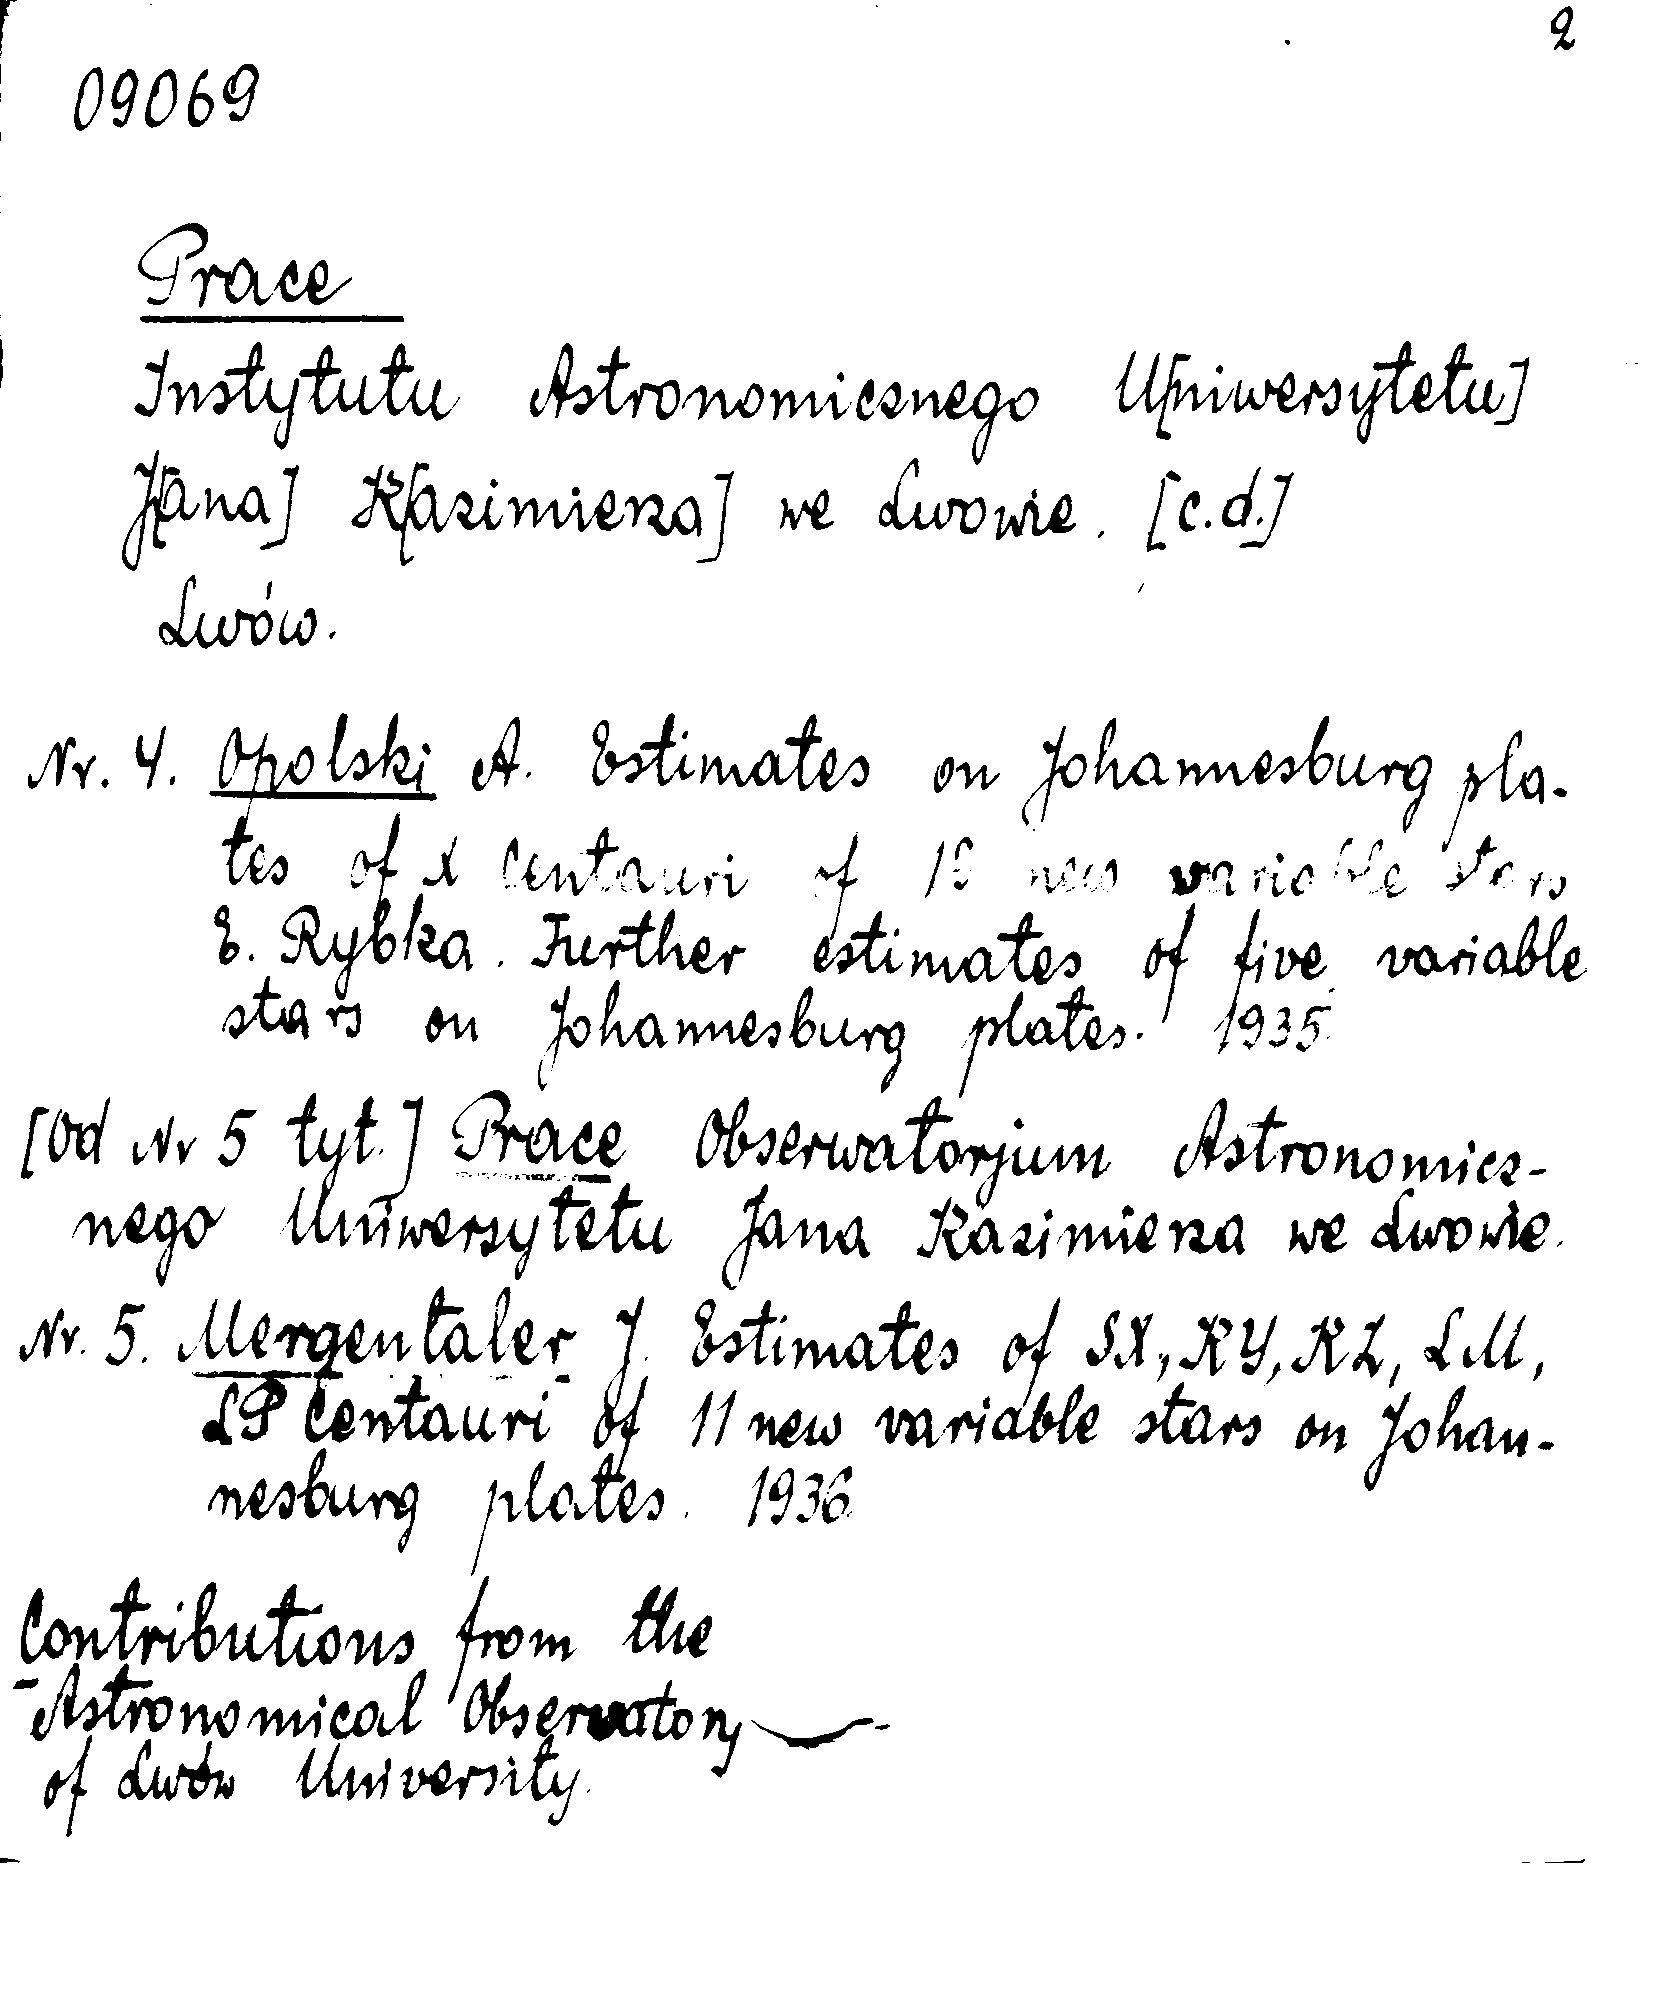 2
09069
Prace
Instytutu Astronomicznego U[niwersytetu]
J[ana] K[azimierza] we Lwowie. [c.d.]
Lwów.
Nr. 4. Opolski A. Estimates on Johannesburg pla-
tes of X Centauri of new variable stars
E. Rybka. Further estimates of five variable
stars on Johannesburg plates. 1935.
[Od Nr 5 tyt.] Prace Obserwatorjum Astronomicz-
nego Uniwersytetu Jana Kazimierza we Lwowie.
Nr. 5. Mergentaler J. Estimates of SX, KY, KZ, LM,
LP Centauri of 11 new variable stars on Johan-
nesburg plates. 1936
Contributions from the
Astronomical Observatory
of Lwów University.